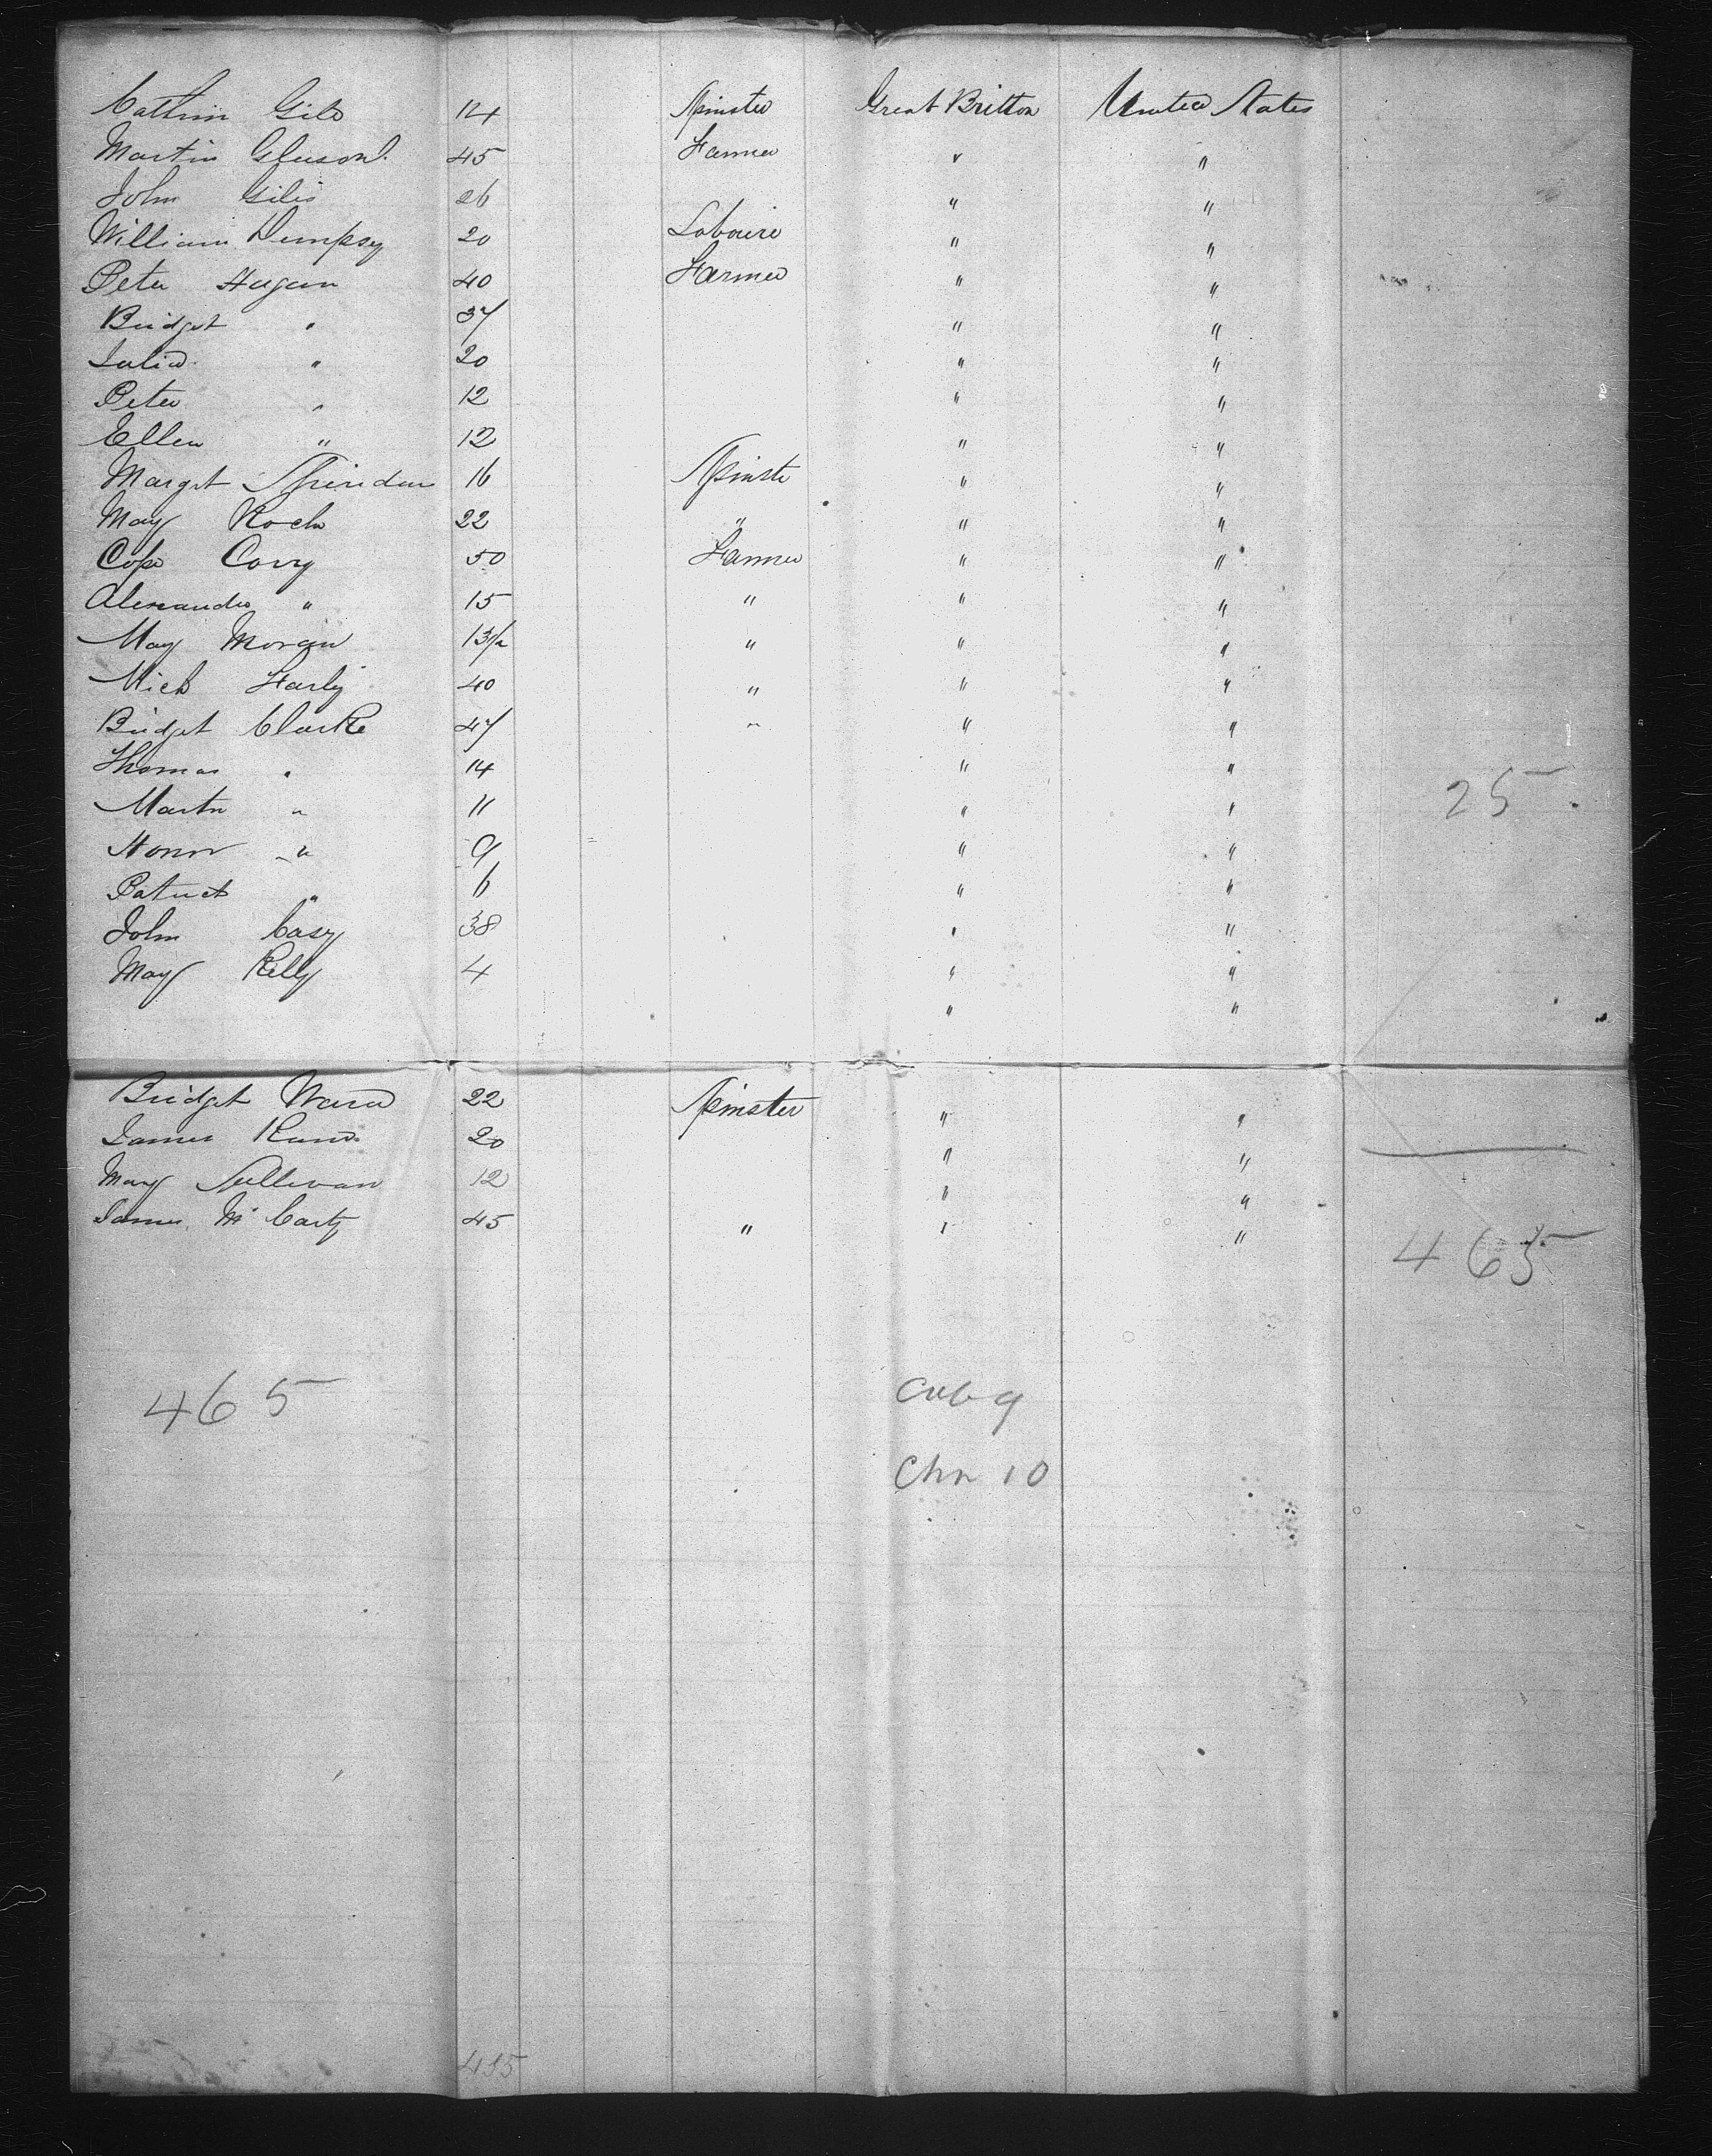 Cathrin Gils 14 Spinster Great Britton United States
Martin Gleeson 45 Farmer " "
John Gilis 26 " "
William Dempsey 20 Labourer " "
Peter Hagan 40 Farmer " "
Bridget " 37 " "
Julia " 20 " "
Peter " 12 " "
Ellen " 12 " "
Margt Sheridan 16 Spinster " "
May Roch 22 " " "
Cope Corry 50 Farmer " "
Alexander " 15 " " "
May Moran 13/12 " " "
Mich Farly 40 " " "
Bridget Clarke 47 " " "
Thomas " 14 " "
Martin " 11 " " 25
Honor " 9 " "
Patrick " 6 " "
John Casy 38 " "
May Kelly 4 " "
" "
Bridget Ward 22 Spinster " "
James 20 " "
Mary Sullivan 12 " "
James McCarty 45 " " "
465
465 Cab 9
Chn 10
455